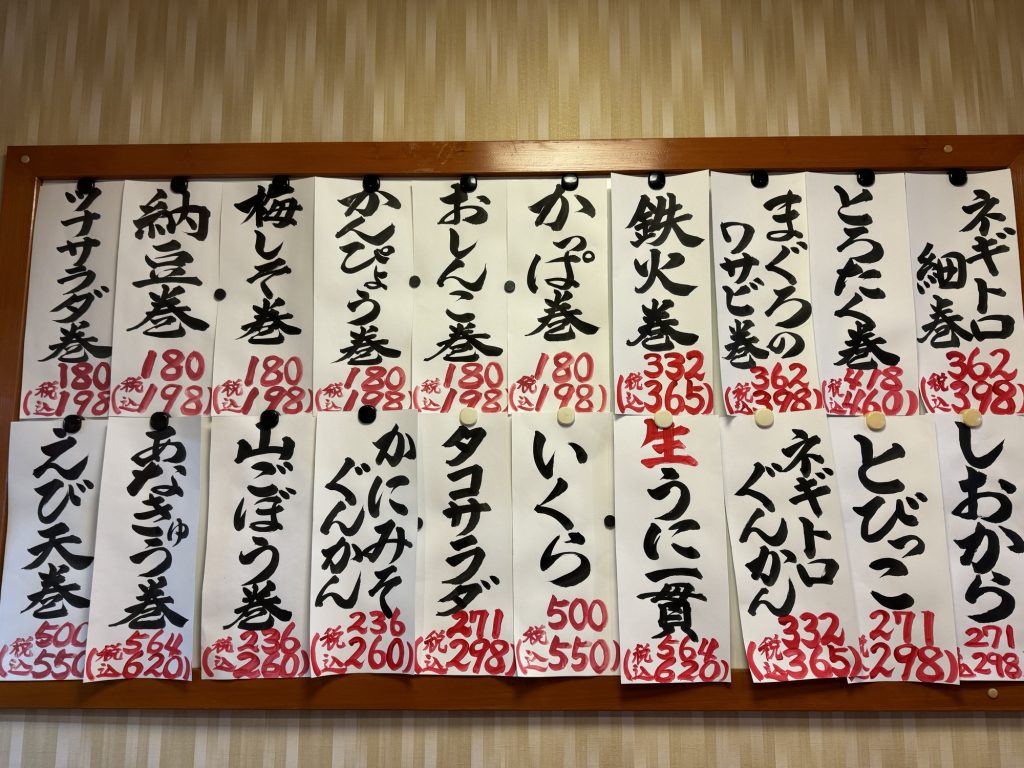 ネギトロ
細巻
362
(税込398)
とろたく巻
418
(税込460)
まぐろの
ワサビ巻
362
(税込398)
鉄火巻
332
(税込365)
かっぱ巻
180
(税込198)
おしんこ巻
180
(税込198)
かんぴょう巻
180
(税込198)
梅しそ巻
180
(税込198)
納豆巻
180
(税込198)
ツナサラダ巻
180
(税込198
しおから
271
込298
とびっこ
271
(税込298)
ネギトロ
ぐんかん
332
(税込365)
生うに一貫
564
(税込620)
いくら
500
(税込550)
タコサラダ
271
(税込298)
かにみそ
ぐんかん
236
(税込260)
山ごぼう巻
236
(税込260)
あなきゅう巻
564
(税込620)
えび天巻
500
(税込550